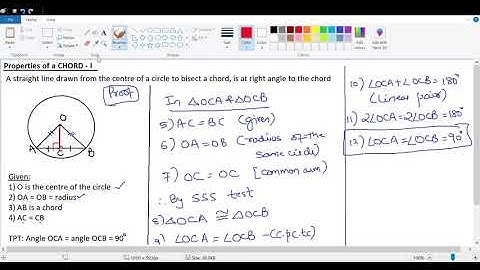 Properties of a CHORD - I
A straight line drawn from the centre of a circle to bisect a chord, is at right angle to the chord
Proof
O
A
C
B
Given:
1) O is the centre of the circle
2) OA = OB = radius
3) AB is a chord
4) AC = CB
TPT: Angle OCA = angle OCB = 90°
In △OCA & △OCB
5) AC = BC (given)
6) OA = OB (radius of the
same circle)
7) OC = OC [common arm)
∴ By SSS test
8) △OCA ≅ △OCB
9) ∠OCA = ∠OCB - (c.p.c.t.c)
10) ∠OCA + ∠OCB = 180°
(Linear pair)
11) 2∠OCA = 2∠OCB = 180°
12) ∠OCA = ∠OCB = 90°
100%